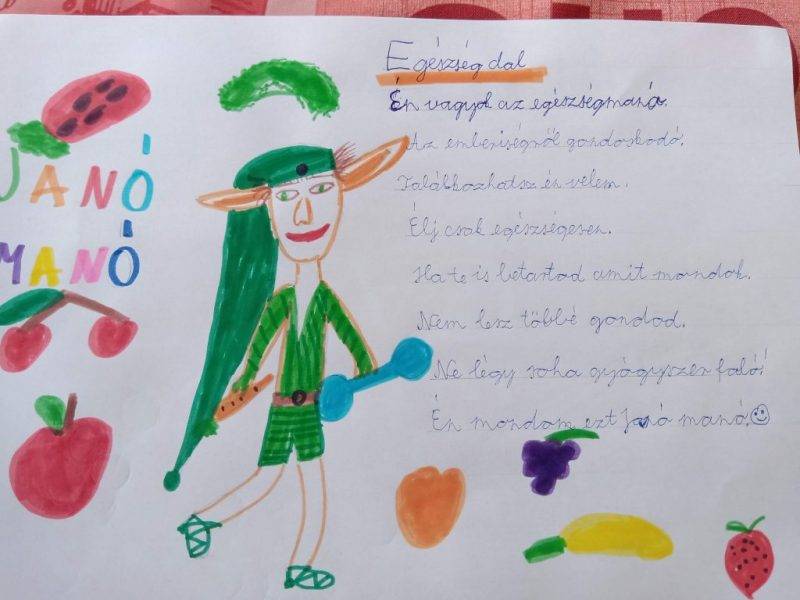 JANÓ
MANÓ
Egészség dal
Én vagyok az egészségmanó.
Az emberiségről gondoskodó.
Találkozhatsz én velem.
Élj csak egészségesen.
Ha te is betartod amit mondok.
Nem lesz többé gondod.
Ne légy soha gyógyszer faló!
Én mondom ezt Janó manó.